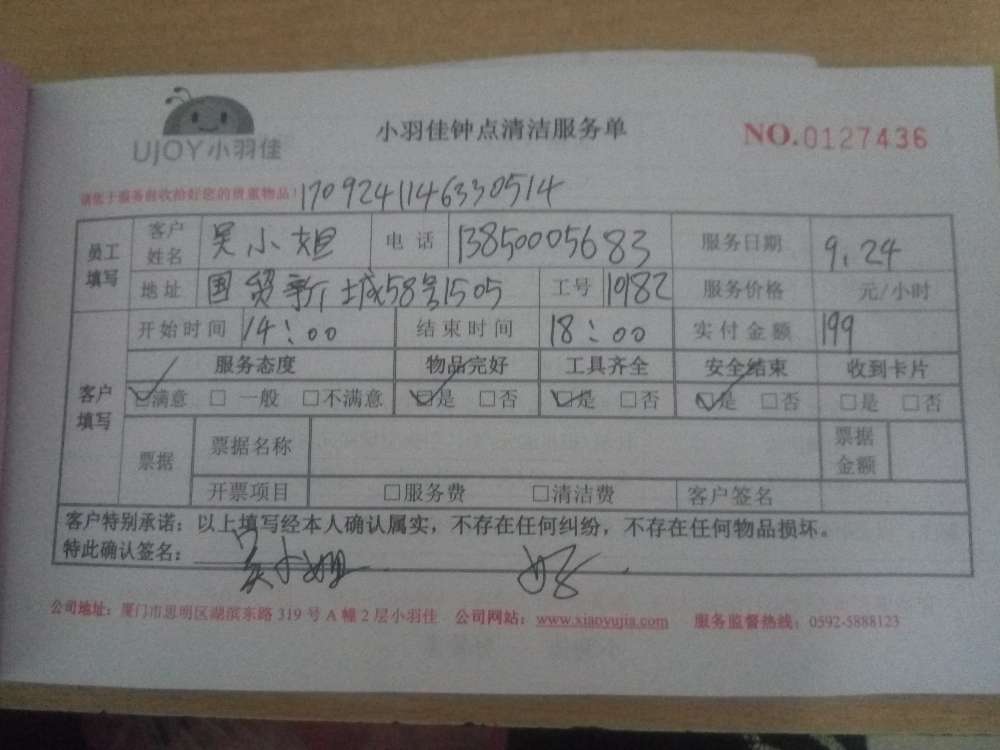 UJOY小羽佳
小羽佳钟点清洁服务单
NO.0127436
请您于服务前收拾好您的贵重物品！1709241146330514
员工填写 客户姓名 吴小姐 电话 13850005683 服务日期 9.24
地址 国贸新城58号1505 工号 10182 服务价格 元/小时
客户填写 开始时间 14:00 结束时间 18:00 实付金额 199
服务态度 物品完好 工具齐全 安全结束 收到卡片
☑满意 □一般 □不满意 ☑是 □否 ☑是 □否 ☑是 □否 □是 □否
票据 票据名称 票据金额
开票项目 □服务费 □清洁费 客户签名
客户特别承诺：以上填写经本人确认属实，不存在任何纠纷，不存在任何物品损坏。
特此确认签名：吴小姐 好
公司地址：厦门市思明区湖滨东路 319 号 A 幢 2 层小羽佳 公司网站：www.xiaoyujia.com 服务监督热线：0592-5888123